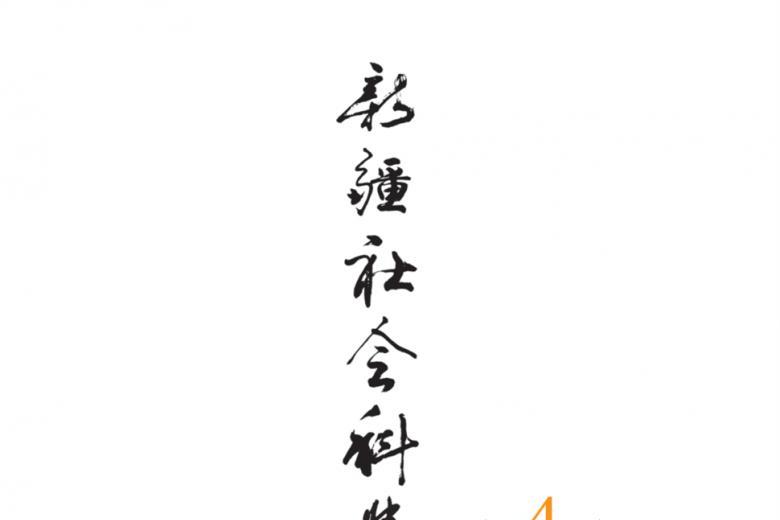 新疆社会科
4